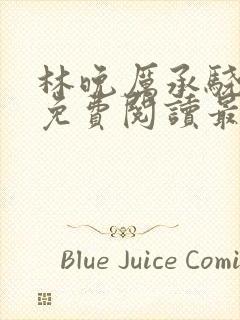 林晚厲承駿
免費閱讀最
Blue Juice Comi